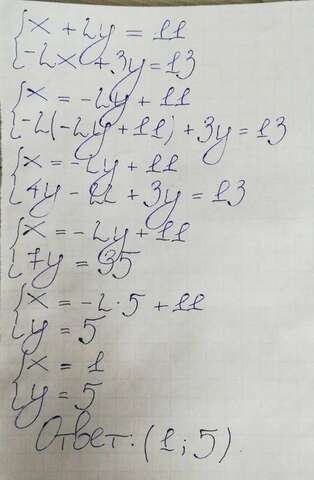 x + 2y = 11
-2x + 3y = 13
x = -2y + 11
-2(-2y + 11) + 3y = 13
x = -2y + 11
4y - 22 + 3y = 13
x = -2y + 11
7y = 35
x = -2·5 + 11
y = 5
x = 1
y = 5
Ответ: (1; 5).